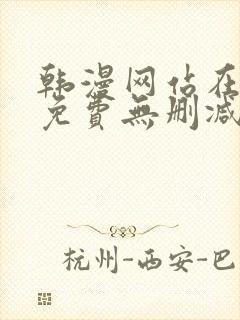 韩漫网站在
免費無删减
杭州-西安-巴